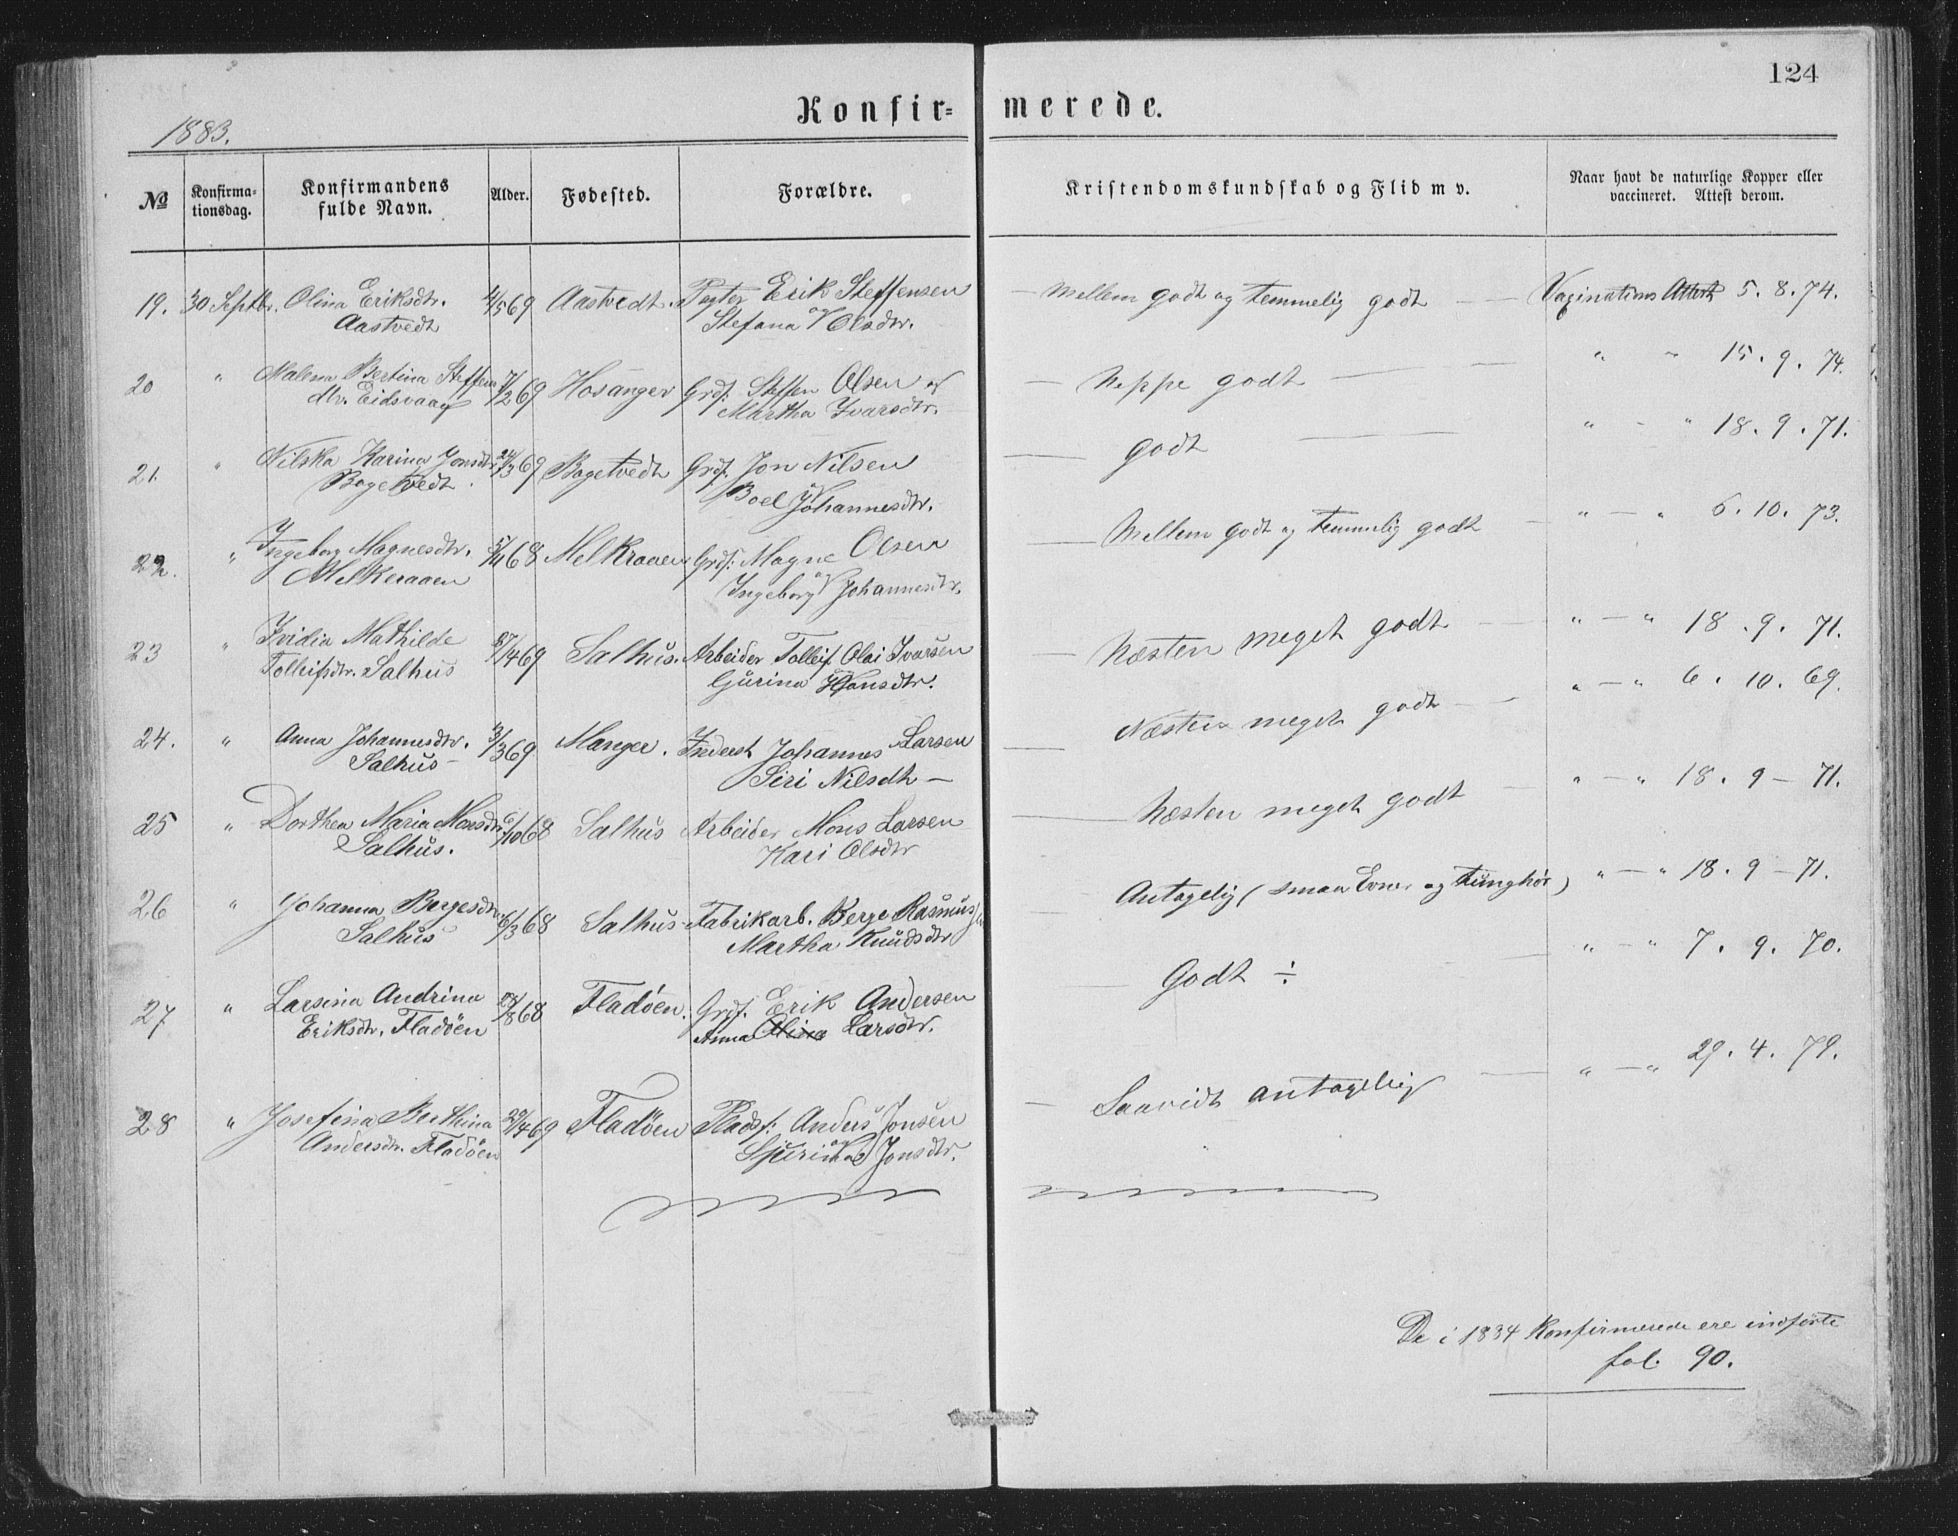 124
Konfir= merede.
1883.
№ Konfirma- tionsdag. Konfirmandens fulde Navn. Alder. Fødested. Forældre. Kristendomskundskab og Flid m v. Naar havt de naturlige Kopper eller vaccineret. Attest derom.
19. 30 Septbr. Olina Eriksdtr. 4/5 69 Aastvedt. Erik Steffensen — Mellem godt og temmelig godt — Vaxinations Attest 5.8.74.
Aastvedt Stefana Olsdtr.
20 " Malena Bertina Steffens 7/2 69 Hosanger Grdf. Steffen Olsen og — Neppe godt — " " 15.9.74.
dtr. Eidsvaag Martha Ivarsdtr.
21. " Nilska Karina Jonsdtr. 24/3 69 Bogetvedt Grdf. Jon Nilsen — godt — " - " 18.9.71.
Bogetvedt. Boel Johannesdtr.
22. " Ingeborg Magnesdtr. 5/11 68 Melkraaen Grdf: Magne Olsen — Mellem godt og temmelig godt — " — " 6.10.73.
Melkeraaen Ingeborg Johannesdtr.
23 " Ividia Mathilde /4 69 Salhus. Arbeider Tolleif Olai Ivarsen — Næsten meget godt — " — " 18.9.71.
Tolleifsdtr. Salhus Gurina Hansdtr.
24. " Anna Johannesdtr. 3/3 69 Manger. Inderst Johannes Larsen — Næsten meget godt — " — " 6.10.69.
Salhus — Siri Nilsdtr —
25 " Dorthea Maria Monsdtr. 6/10 68 Salhus Arbeider Mons Larsen — Næsten meget godt — " — " 18.9-71.
Salhus. Kari Olsdtr
26 " Johanna Bergesdtr. 6/3 68 Salhus - Fabrikarb. Berge Rasmus — Antagelig (smaa Evner og tunghør) " — " 18.9-71.
Salhus Martha Knudsdtr
27 " Larsina Andrina 28/8 68 Fladöen. Grdf. Erik Andersen — Godt ÷ — " — " 7.9.70.
Eriksdtr. Fladöen Anna Larsdtr.
28 " Josefina Berthina 29/4 69 Fladöen Pladsf: Anders Jonsen — Saavidt antagelig — " — " 29.4.79.
Andersdtr. Fladöen Sjurina Jonsdtr.
De i 1884 Konfirmerede ere indførte
fol. 90.